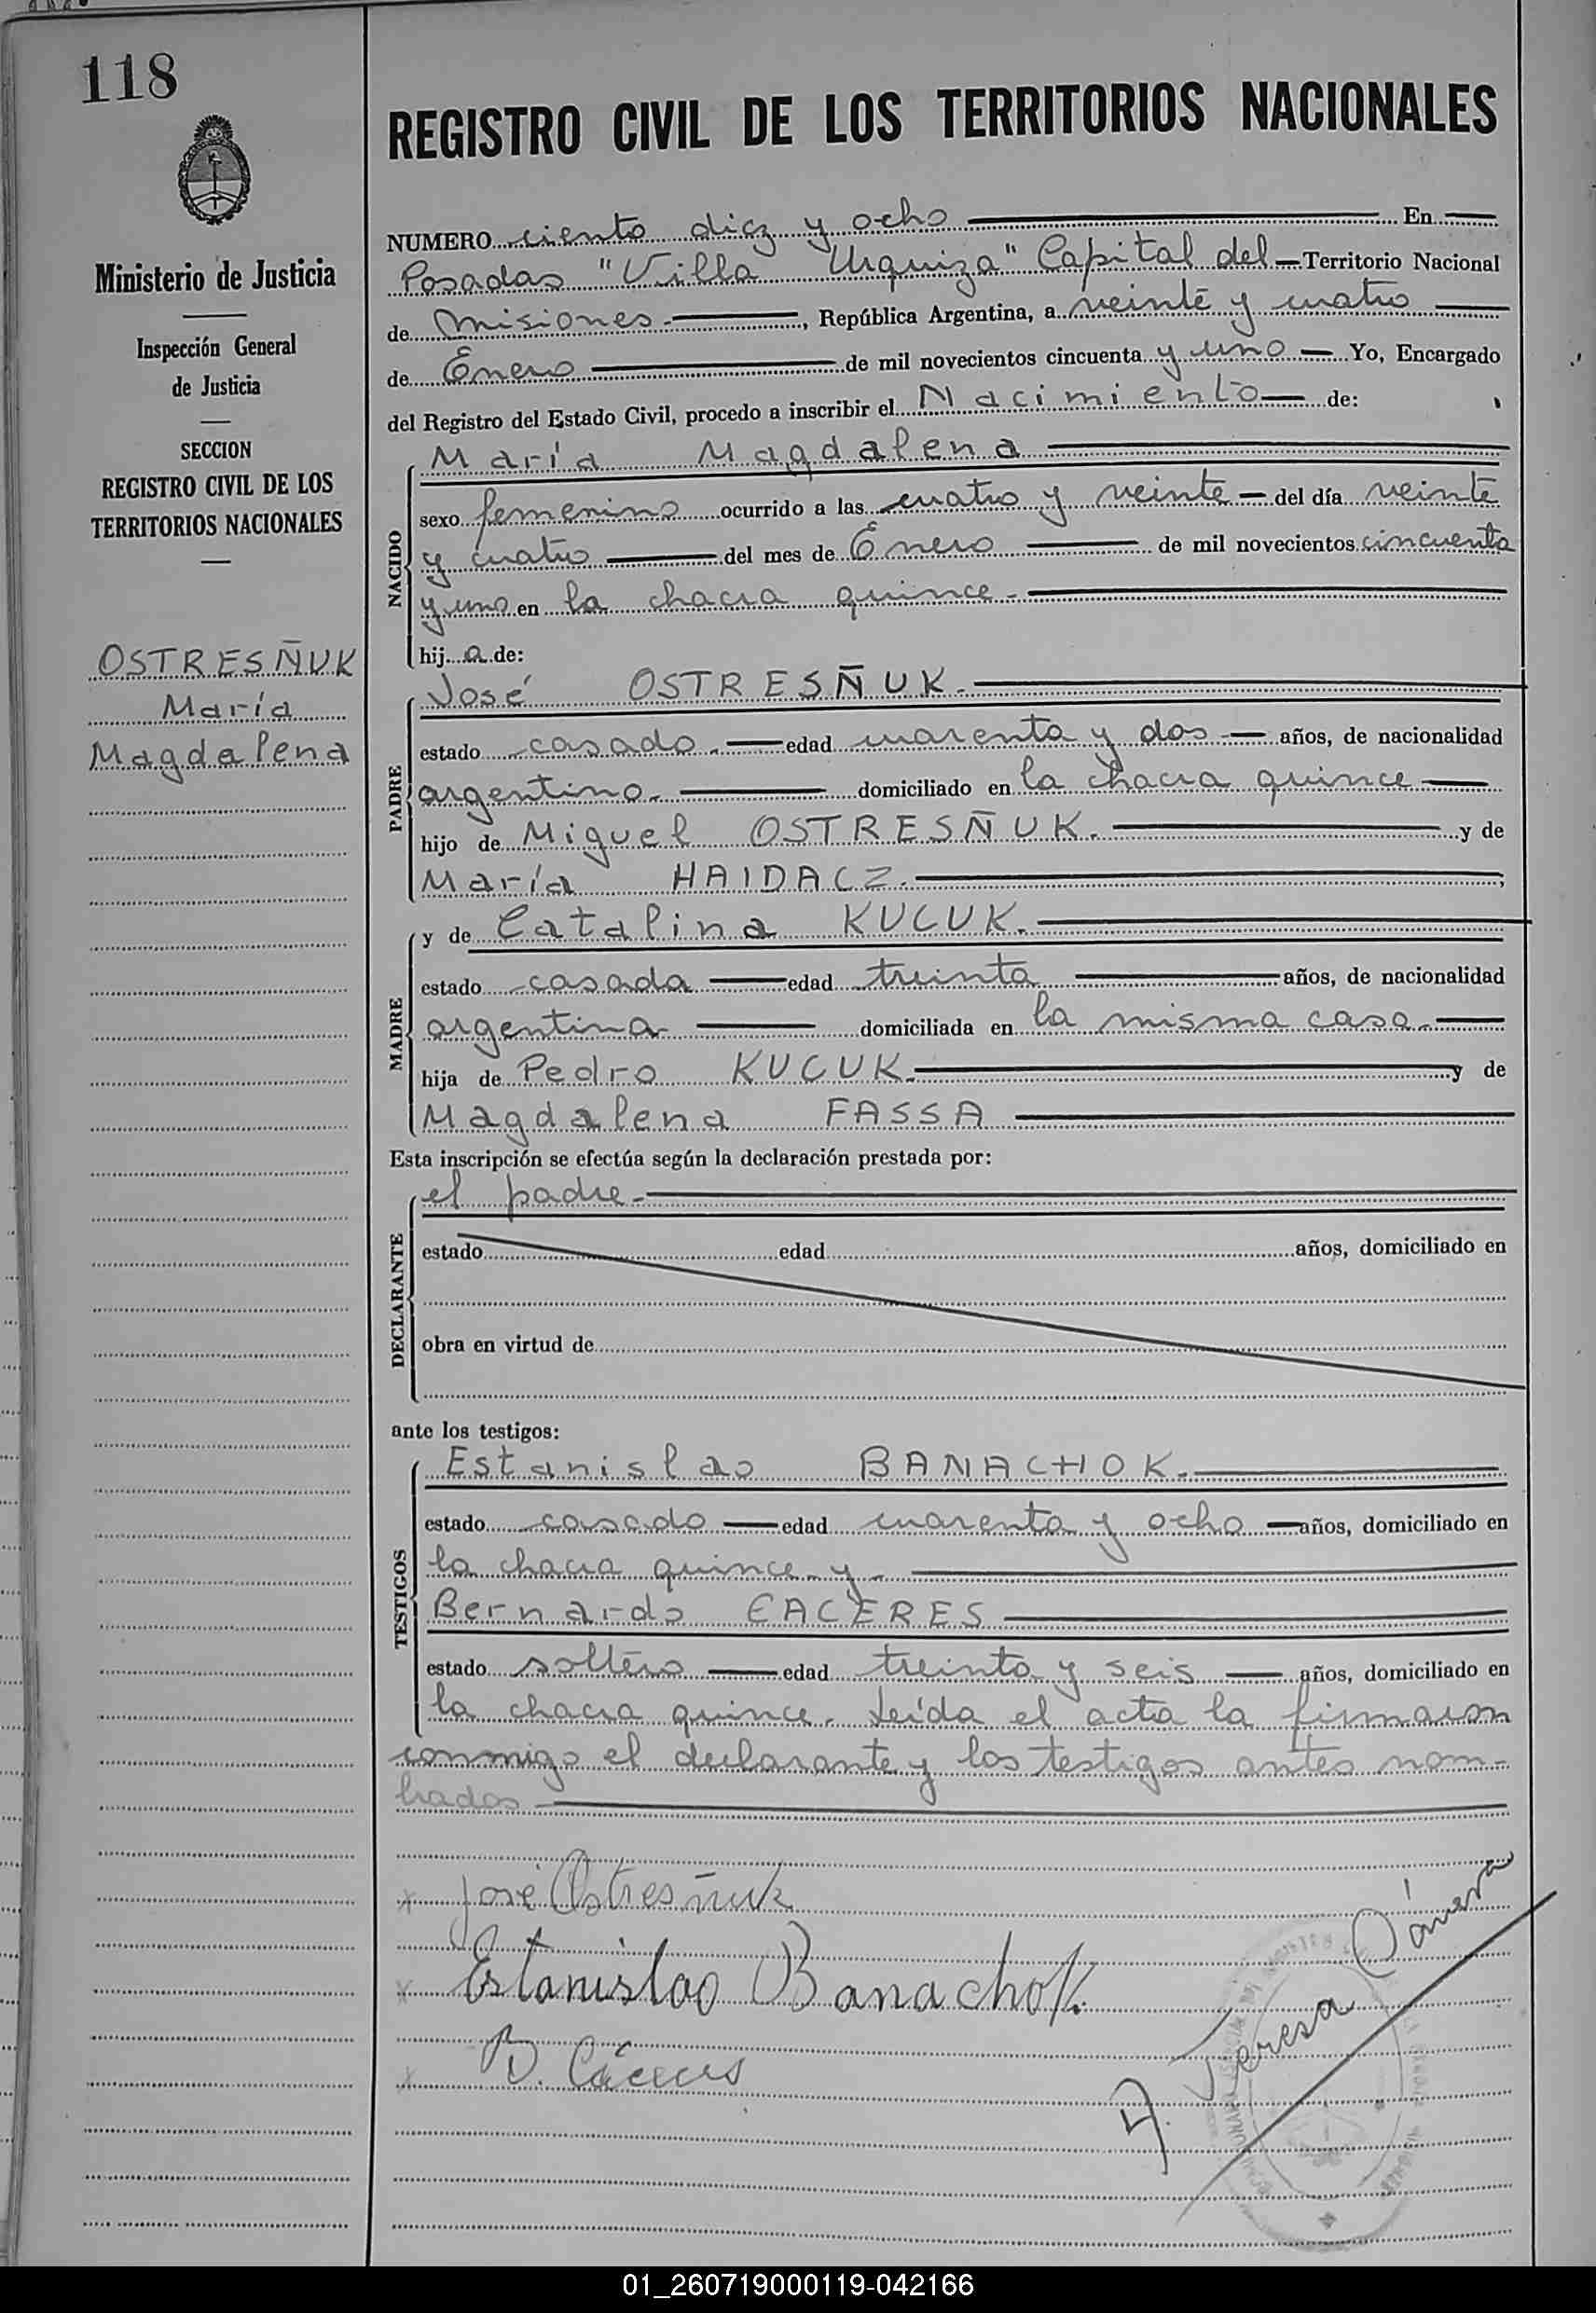 118
Ministerio de Justicia
Inspección General
de Justicia
SECCION
REGISTRO CIVIL DE LOS
TERRITORIOS NACIONALES
OSTRESÑUK
María
Magdalena
REGISTRO CIVIL DE LOS TERRITORIOS NACIONALES
NUMERO ciento diez y ocho En
Posadas "Villa Urquiza" Capital del Territorio Nacional
de Misiones.-, República Argentina, a veinte y cuatro
de Enero de mil novecientos cincuenta y uno Yo, Encargado
del Registro del Estado Civil, procedo a inscribir el Nacimiento de:
María Magdalena
NACIDO
sexo femenino ocurrido a las cuatro y veinte del día veinte
y cuatro del mes de Enero de mil novecientos cincuenta
y uno en la chacra quince.-
hij a de:
José OSTRESÑUK.-
PADRE
estado casado.- edad cuarenta y dos.- años, de nacionalidad
argentino.- domiciliado en la chacra quince
hijo de Miguel OSTRESÑUK. y de
María HAIDACZ.-;
y de Catalina KUCUK.
MADRE
estado casada edad treinta años, de nacionalidad
argentina domiciliada en la misma casa.-
hija de Pedro KUCUK. y de
Magdalena FASSA
Esta inscripción se efectúa según la declaración prestada por:
el padre.-
DECLARANTE
estado edad años, domiciliado en
obra en virtud de
ante los testigos:
Estanislao BANACHOK.
TESTIGOS
estado casado edad cuarenta y ocho años, domiciliado en
la chacra quince y.-
Bernardo CACERES
estado soltero edad treinta y seis años, domiciliado en
la chacra quince. Leída el acta la firmaron
conmigo el declarante y los testigos antes nom-
brados.-
José Ostresñuk
Estanislao Banachok.
B. Cáceres
Teresa
01_260719000119-042166